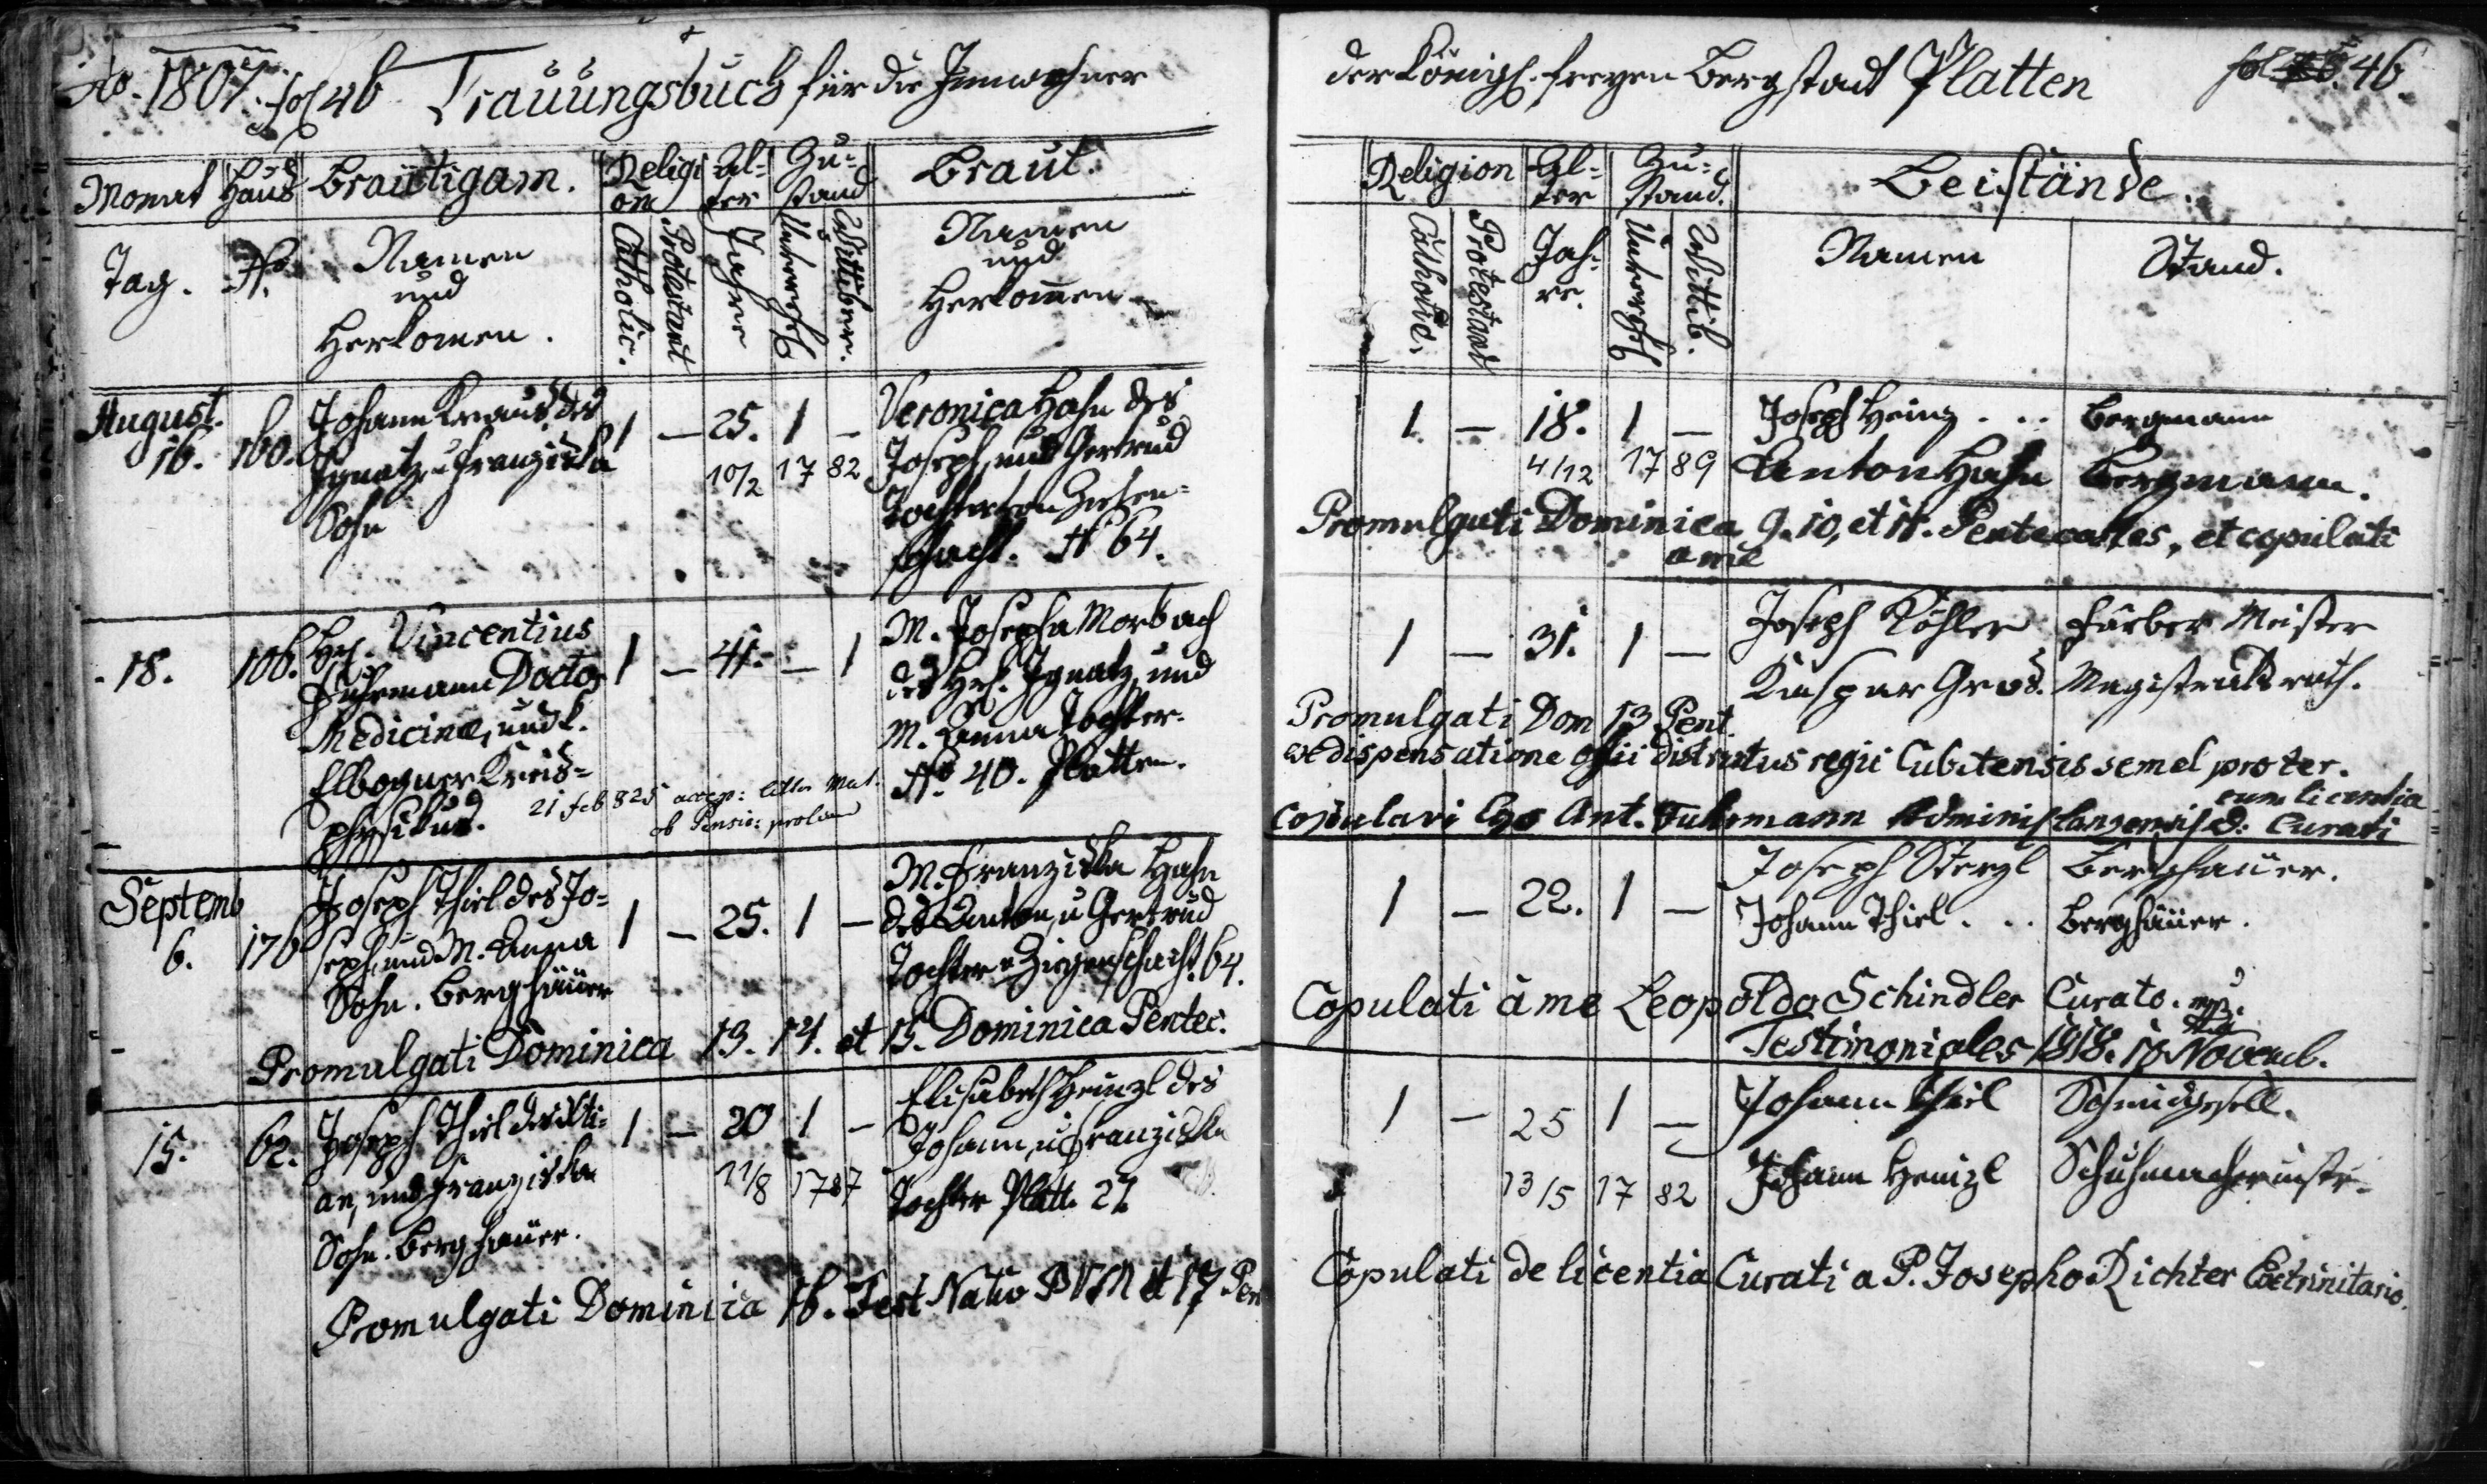 Ao. 1807. fol 46 Trauungsbuch für die Innwohner
der königl. freyen Bergstadt Platten fol 46.
Monat Haus Bräutigam. Religion Alter Zustand Braut.
Tag. No. Namen und Herkomen. Catholic. Protestant Jahre Unverehl Wittiber. Namen und Herkomen
Religion Alter Zustand. Beistände.
Catholic. Protestant Jahre. Unverehl Wittib. Namen Stand.
August.
16. 160.
Johann Kraus des
Ignatz, u Franziska
Sohn
1 — 25. 1 —
10/2 17 82
Veronica Hahn des
Joseph, und Gertrud
Tochter von Ziehen=
schacht. No 64.
1. — 18. 1 —
4/12 17 89
Joseph Heinz . . . Bergmann
Anton Hahn Bergmann.
Promulgati Dominica 9. 10, et 11. Pentecostes, et copulati
a me
18. 106.
Hr. Vincentius
Fuhrmann Doctor
Medicinæ, und k.
Elbogner Kreis=
physikus.
1 — 41. — 1
21 feb 825 accep:
ob Pensio:
M. Josepha Morbach
des Hr. Ignatz, und
M. Anna Tochter.
No. 40. Platten.
1 — 31. 1 —
Joseph Köhler Färber Meister
Kaspar Gros. Magistratsrath.
Promulgati Dom 13 Pent.
ex dispensatione offii districtus regii Cubitensis semel pro ter.
cum licentia
Copulavi Ego Ant. Fuhrmann D: Curati
Septemb
6. 176
Joseph Thiel des Jo=
seph, und M. Anna
Sohn. Berghäuer
1 — 25. 1 —
M. Franziska Hahn
des Anton, u Gertrud
Tochter v Ziegenschacht. 64.
Promulgati Dominica 13. 14. et 15. Dominica Pentec.
1 — 22. 1 —
Joseph Sterzl Berghäuer.
Johann Thiel . . . Berghäuer.
Copulati à me Leopoldo Schindler Curato. mp.
Testimoniales 1818. 18 Novemb.
15. 62.
Joseph Thiel des
an, und Franziska
Sohn. Berghäuer.
1 — 20 1 —
11/8 1787
Elisabeth Heinzl des
Johann, u Franziska
Tochter Platt. 27
Promulgati Dominica 16. Fest Nativ BVM et 17 Pen
1 — 25 1 —
13/5 17 82
Johann Thiel Schmidgesell.
Johann Heinzl Schuhmachermstr.
Copulati de licentia Curati a P. Josepho Richter Extrinitario.